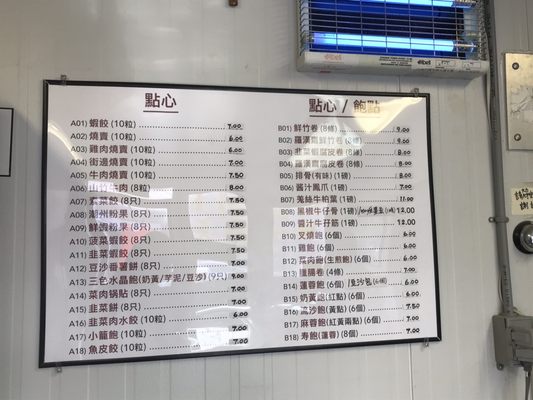 elbel
點心
A01) 蝦餃 (10粒) 7.00
A02) 燒賣 (10粒) 6.00
A03) 雞肉燒賣 (10粒) 6.00
A04) 街邊燒賣 (10粒) 7.50
A05) 牛肉燒賣 (10粒) 7.50
A06) 山竹牛肉 (8粒) 8.00
A07) 素菜餃 (8只) 7.50
A08) 潮州粉果 (8只) 7.50
A09) 鮮蝦粉果 (8只) 7.50
A10) 菠菜蝦餃 (8只) 7.50
A11) 韭菜蝦餃 (8只) 7.50
A12) 豆沙番薯餅 (8只) 7.00
A13) 三色水晶飽 (奶黃/芋泥/豆沙) (9只) 9.00
A14) 菜肉锅貼 (8只) 7.00
A15) 韭菜餅 (8只) 7.00
A16) 韭菜肉水餃 (10粒) 6.00
A17) 小籠飽 (10粒) 7.00
A18) 魚皮餃 (10粒) 7.00
點心 / 飽點
B01) 鮮竹卷 (8條) 9.00
B02) 羅漢齋鮮竹卷 (8條) 9.00
B03) 韭菜蝦腐皮卷 (8條) 8.00
B04) 羅漢齋腐皮卷 (8條) 8.00
B05) 排骨(有味) (1磅) 8.00
B06) 醬汁鳳爪 (1磅) 7.00
B07) 薑絲牛柏葉 (1磅) 11.00
B08) 黑椒牛仔骨 (1磅) 12.00
B09) 醬汁牛孖筋 (1磅) 12.00
B10) 叉燒飽 (6個) 6.00
B11) 雞飽 (6個) 6.00
B12) 菜肉飽(生煎飽) (6個) 6.00
B13) 臘腸卷 (4條) 7.00
B14) 蓮蓉飽 (6個) /豆沙包(6個) 6.00
B15) 奶黃飽(紅點) (6個) 6.00
B16) 流沙飽(黃點) (6個) 7.00
B17) 麻蓉飽(紅黃兩點) (6個) 7.00
B18) 寿飽(蓮蓉) (8個) 7.00